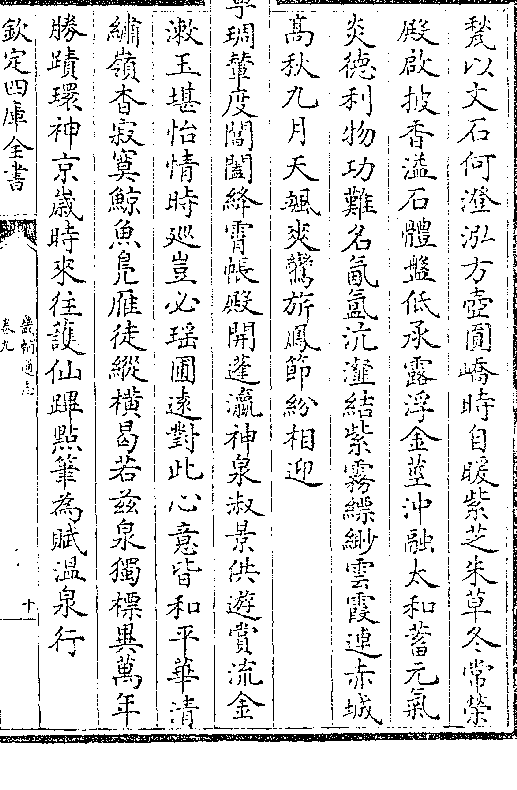 甃以文石何澄泓方壺圓嶠時自暖紫芝朱草冬常榮
殿啟披香溢石體盤低承露浮金莖沖融太和蓄元氣
炎德利物功難名氤氲沆瀣結紫霧縹緲雲霞連赤城
髙秋九月天颷爽鸞旂鳳節紛相迎
琱輦度閶闔絳霄帳殿開蓬瀛神泉淑景供遊賞流金
漱玉堪怡情時廵豈必瑶圃逺對此心意皆和平華清
繡嶺杳寂寞鯨魚鳬雁徒縱橫曷若兹泉獨標異萬年
勝蹟環神京歳時來往護仙蹕㸃筆為賦温泉行
欽定四庫全書
畿輔通志
卷九
十